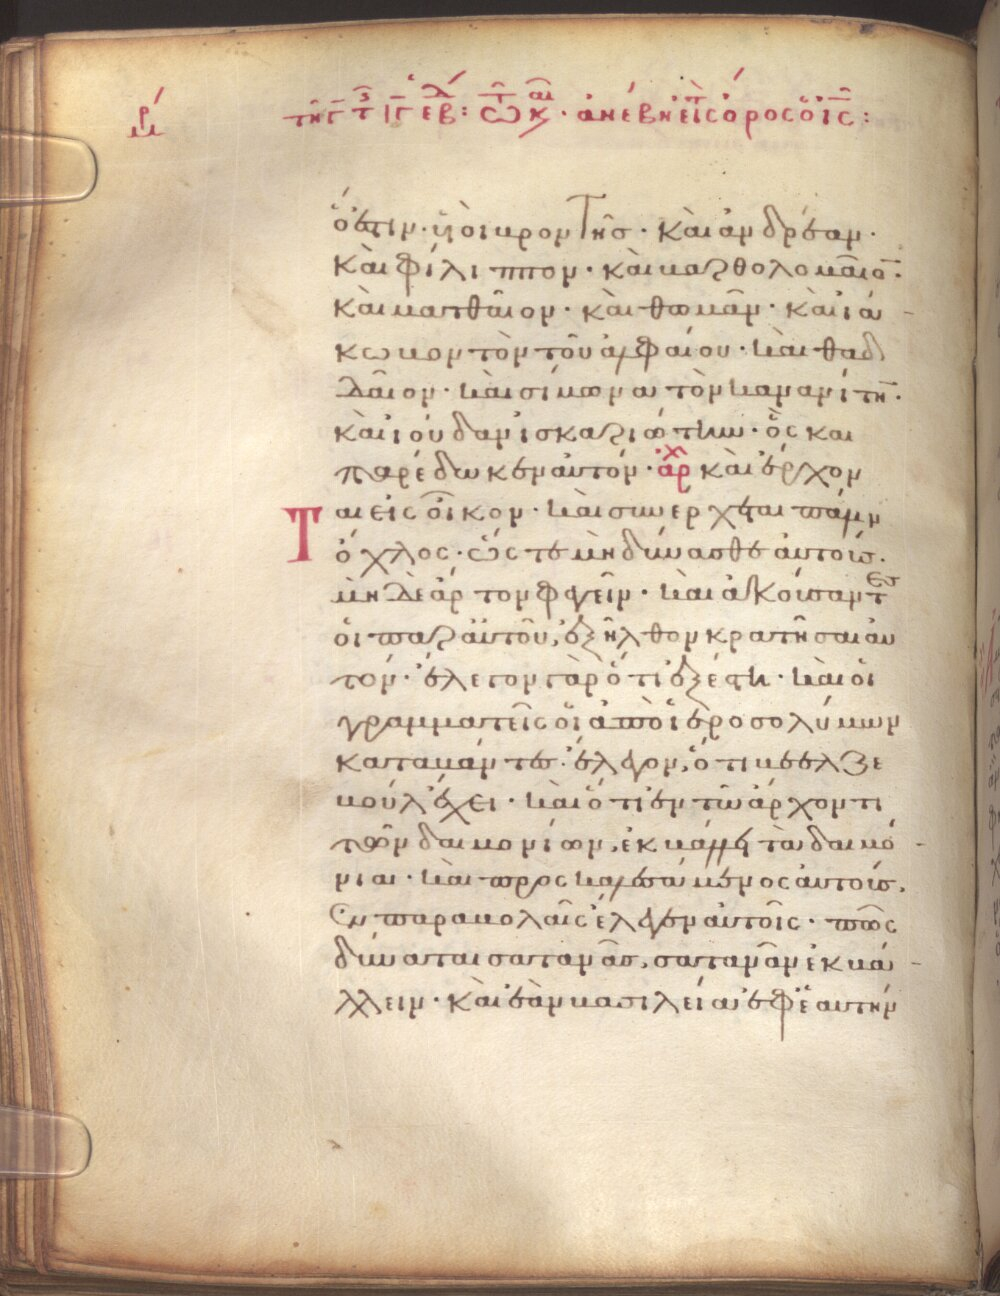 ὅ ἐστιν· υἱοὶ βροντῆς· καὶ ἀνδρέαν·
καὶ φίλιππον· καὶ βαρθολομαῖον·
καὶ ματθαῖον· καὶ θωμᾶν· καὶ ἰά
κωβον τὸν τοῦ ἀλφαίου· καὶ θαδ
δαῖον· καὶ σίμωνα τὸν κανανίτην·
καὶ ἰούδαν ἰσκαριώτην· ὃς καὶ
παρέδωκεν αὐτόν· ἀρχ καὶ ἔρχον
Ται εἰς οἶκον· καὶ συνέρχεται πάλιν
ὄχλος· ὥστε μὴ δύνασθε αὐτοὺς·
μηδὲ ἄρτον φαγεῖν· καὶ ἀκούσαντες
οἱ παρ αὐτοῦ, ἐξῆλθον κρατῆσαι αὐ
τόν· ἔλεγον γὰρ ὅτι ἐξέστη· καὶ οἱ
γραμματεῖς οἱ ἀπὸ ἱεροσολύμων
καταβάντες· ἔλεγον, ὅτι βεελζε
βοὺλ ἔχει· καὶ ὅτι ἐν τῶ ἄρχοντι
τῶν δαιμονίων, ἐκβάλλει τὰ δαιμό
νια· καὶ προσκαλεσάμενος αὐτοὺς,
Ἐν παραβολαῖς ἔλεγεν αὐτοῖς· πῶς
δύναται σατανᾶς, σατανᾶν ἐκβά
λλειν· καὶ ἐὰν βασιλεία ἐφ ἑαυτὴν